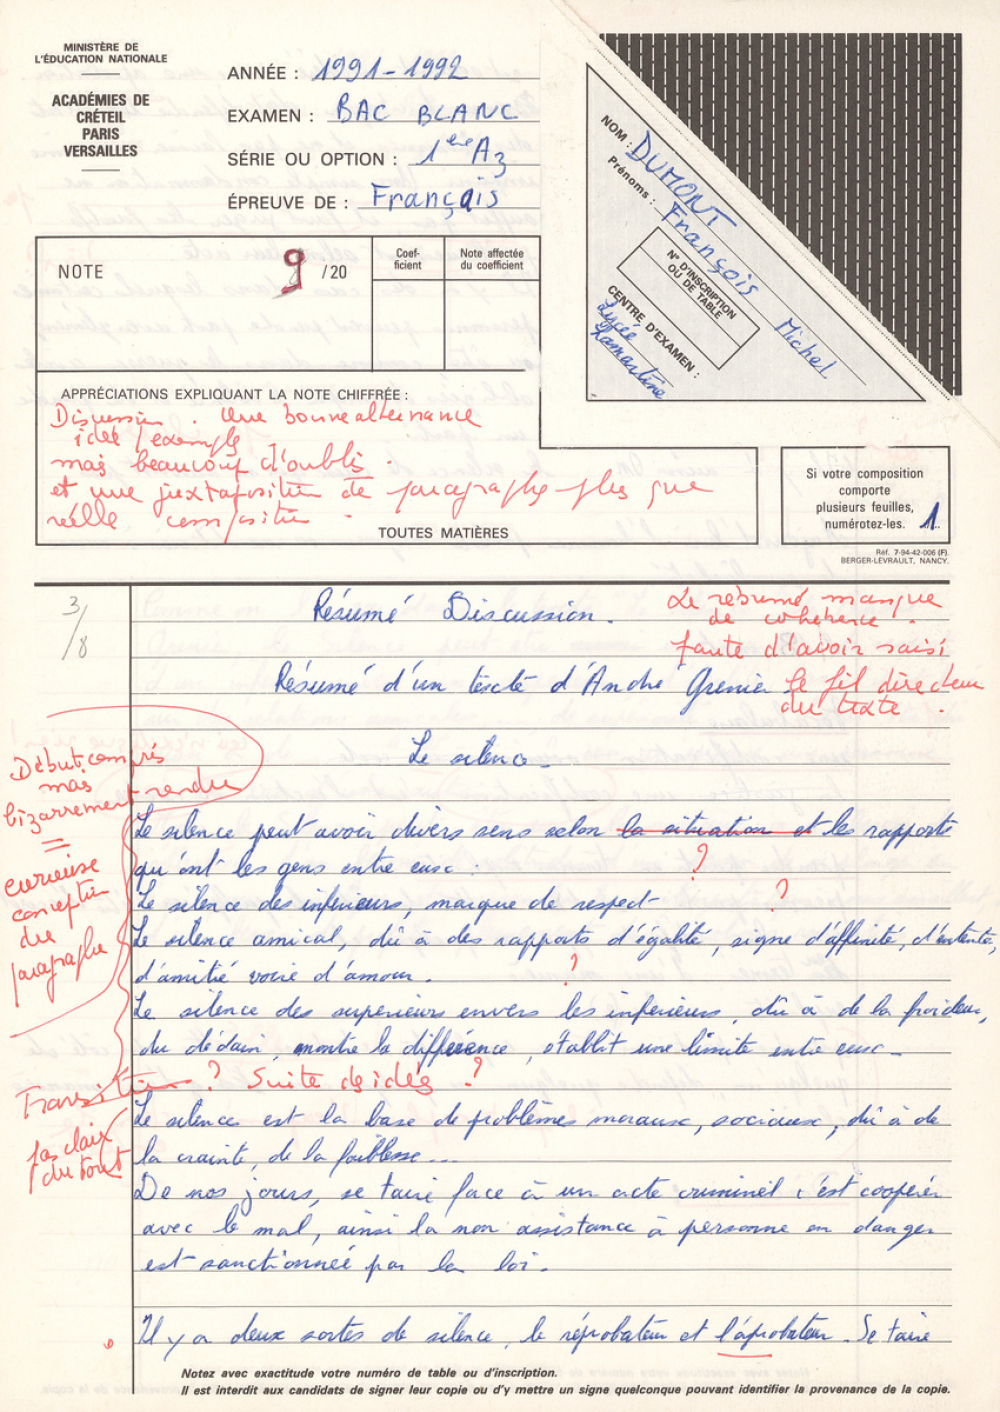 MINISTÈRE DE
L'ÉDUCATION NATIONALE
ACADÉMIES DE
CRÉTEIL
PARIS
VERSAILLES
ANNÉE : 1991-1992
EXAMEN : BAC BLANC
SÉRIE OU OPTION : 1ère A3
ÉPREUVE DE : Français
NOM : DUMONT
Prénoms : François Michel
N° D'INSCRIPTION
OU DE TABLE
CENTRE D'EXAMEN :
Lycée
Lamartine
NOTE 9 /20
Coef-
ficient
Note affectée
du coefficient
APPRÉCIATIONS EXPLIQUANT LA NOTE CHIFFRÉE :
Discussion. Une bonne alternance
idée/exemple
mais beaucoup d'oublis.
et une juxtaposition de paragraphes plus que
réelle composition.
TOUTES MATIÈRES
Si votre composition
comporte
plusieurs feuilles,
numérotez-les. 1
Réf. 7-94-42-006 (F).
BERGER-LEVRAULT, NANCY.
3/
/8
Résumé Discussion.
Le résumé manque
de cohérence.
faute d'avoir saisi
le fil directeur
du texte.
Résumé d'un texte d'André Grenier
Le silence.
Début compris
mais
bizarrement rendu
=
curieuse
conception
du
paragraphe
Le silence peut avoir divers sens selon la situation et les rapports
qu'ont les gens entre eux. ?
Le silence des inférieurs, marque de respect ?
Le silence amical, dû à des rapports d'égalité, signe d'affinité, d'entente,
d'amitié voire d'amour. ?
Le silence des supérieurs envers les inférieurs, dû à de la froideur,
du dédain, montre la différence, établit une limite entre eux.
Transition ? Suite des idées ?
Le silence est la base de problèmes moraux, sociaux, dû à de
la crainte, de la faiblesse...
pas clair
du tout
De nos jours, se taire face à un acte criminel c'est coopérer
avec le mal, ainsi la non assistance à personne en danger
est sanctionneé par la loi.
Il y a deux sortes de silence, le réprobateur et l'aprobateur. Se taire
Notez avec exactitude votre numéro de table ou d'inscription.
Il est interdit aux candidats de signer leur copie ou d'y mettre un signe quelconque pouvant identifier la provenance de la copie.